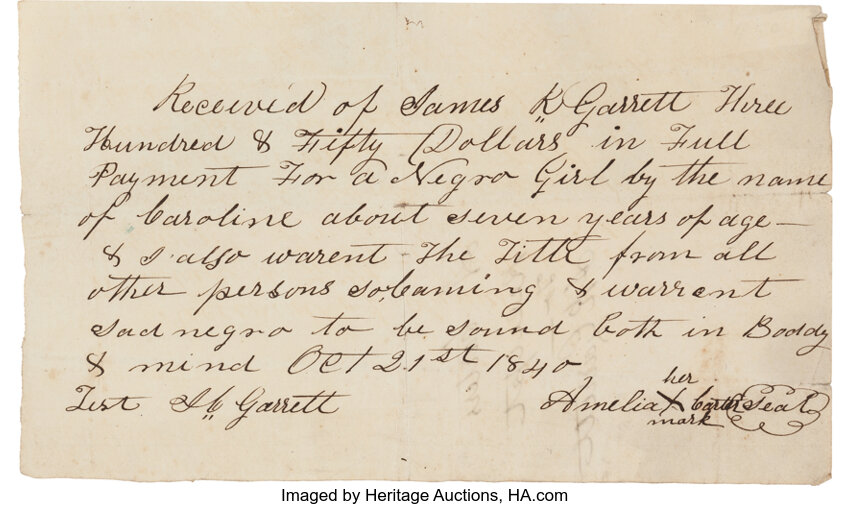 Receiv'd of James K Garrett three
Hundred & Fifty Dollars in Full
Payment For a Negro Girl by the name
of Caroline about seven years of age —
& I also warent The Title from all
other persons so, Caming & warrent
sad negro to be sound both in Boddy
& mind Oct 21st 1840
her
Test J C Garrett Amelia X Carter Seal
mark
Imaged by Heritage Auctions, HA.com